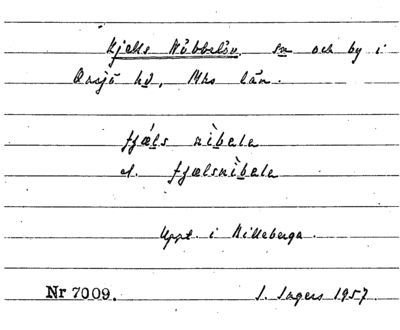 Kjells Nöbbelöv sn och by i
Onsjö hd, Mhs län.
fjǽls nìbələ
el. fjælsnìbələ
Uppt. i Billeberga.
Nr 7009. I. Ingers 1957.